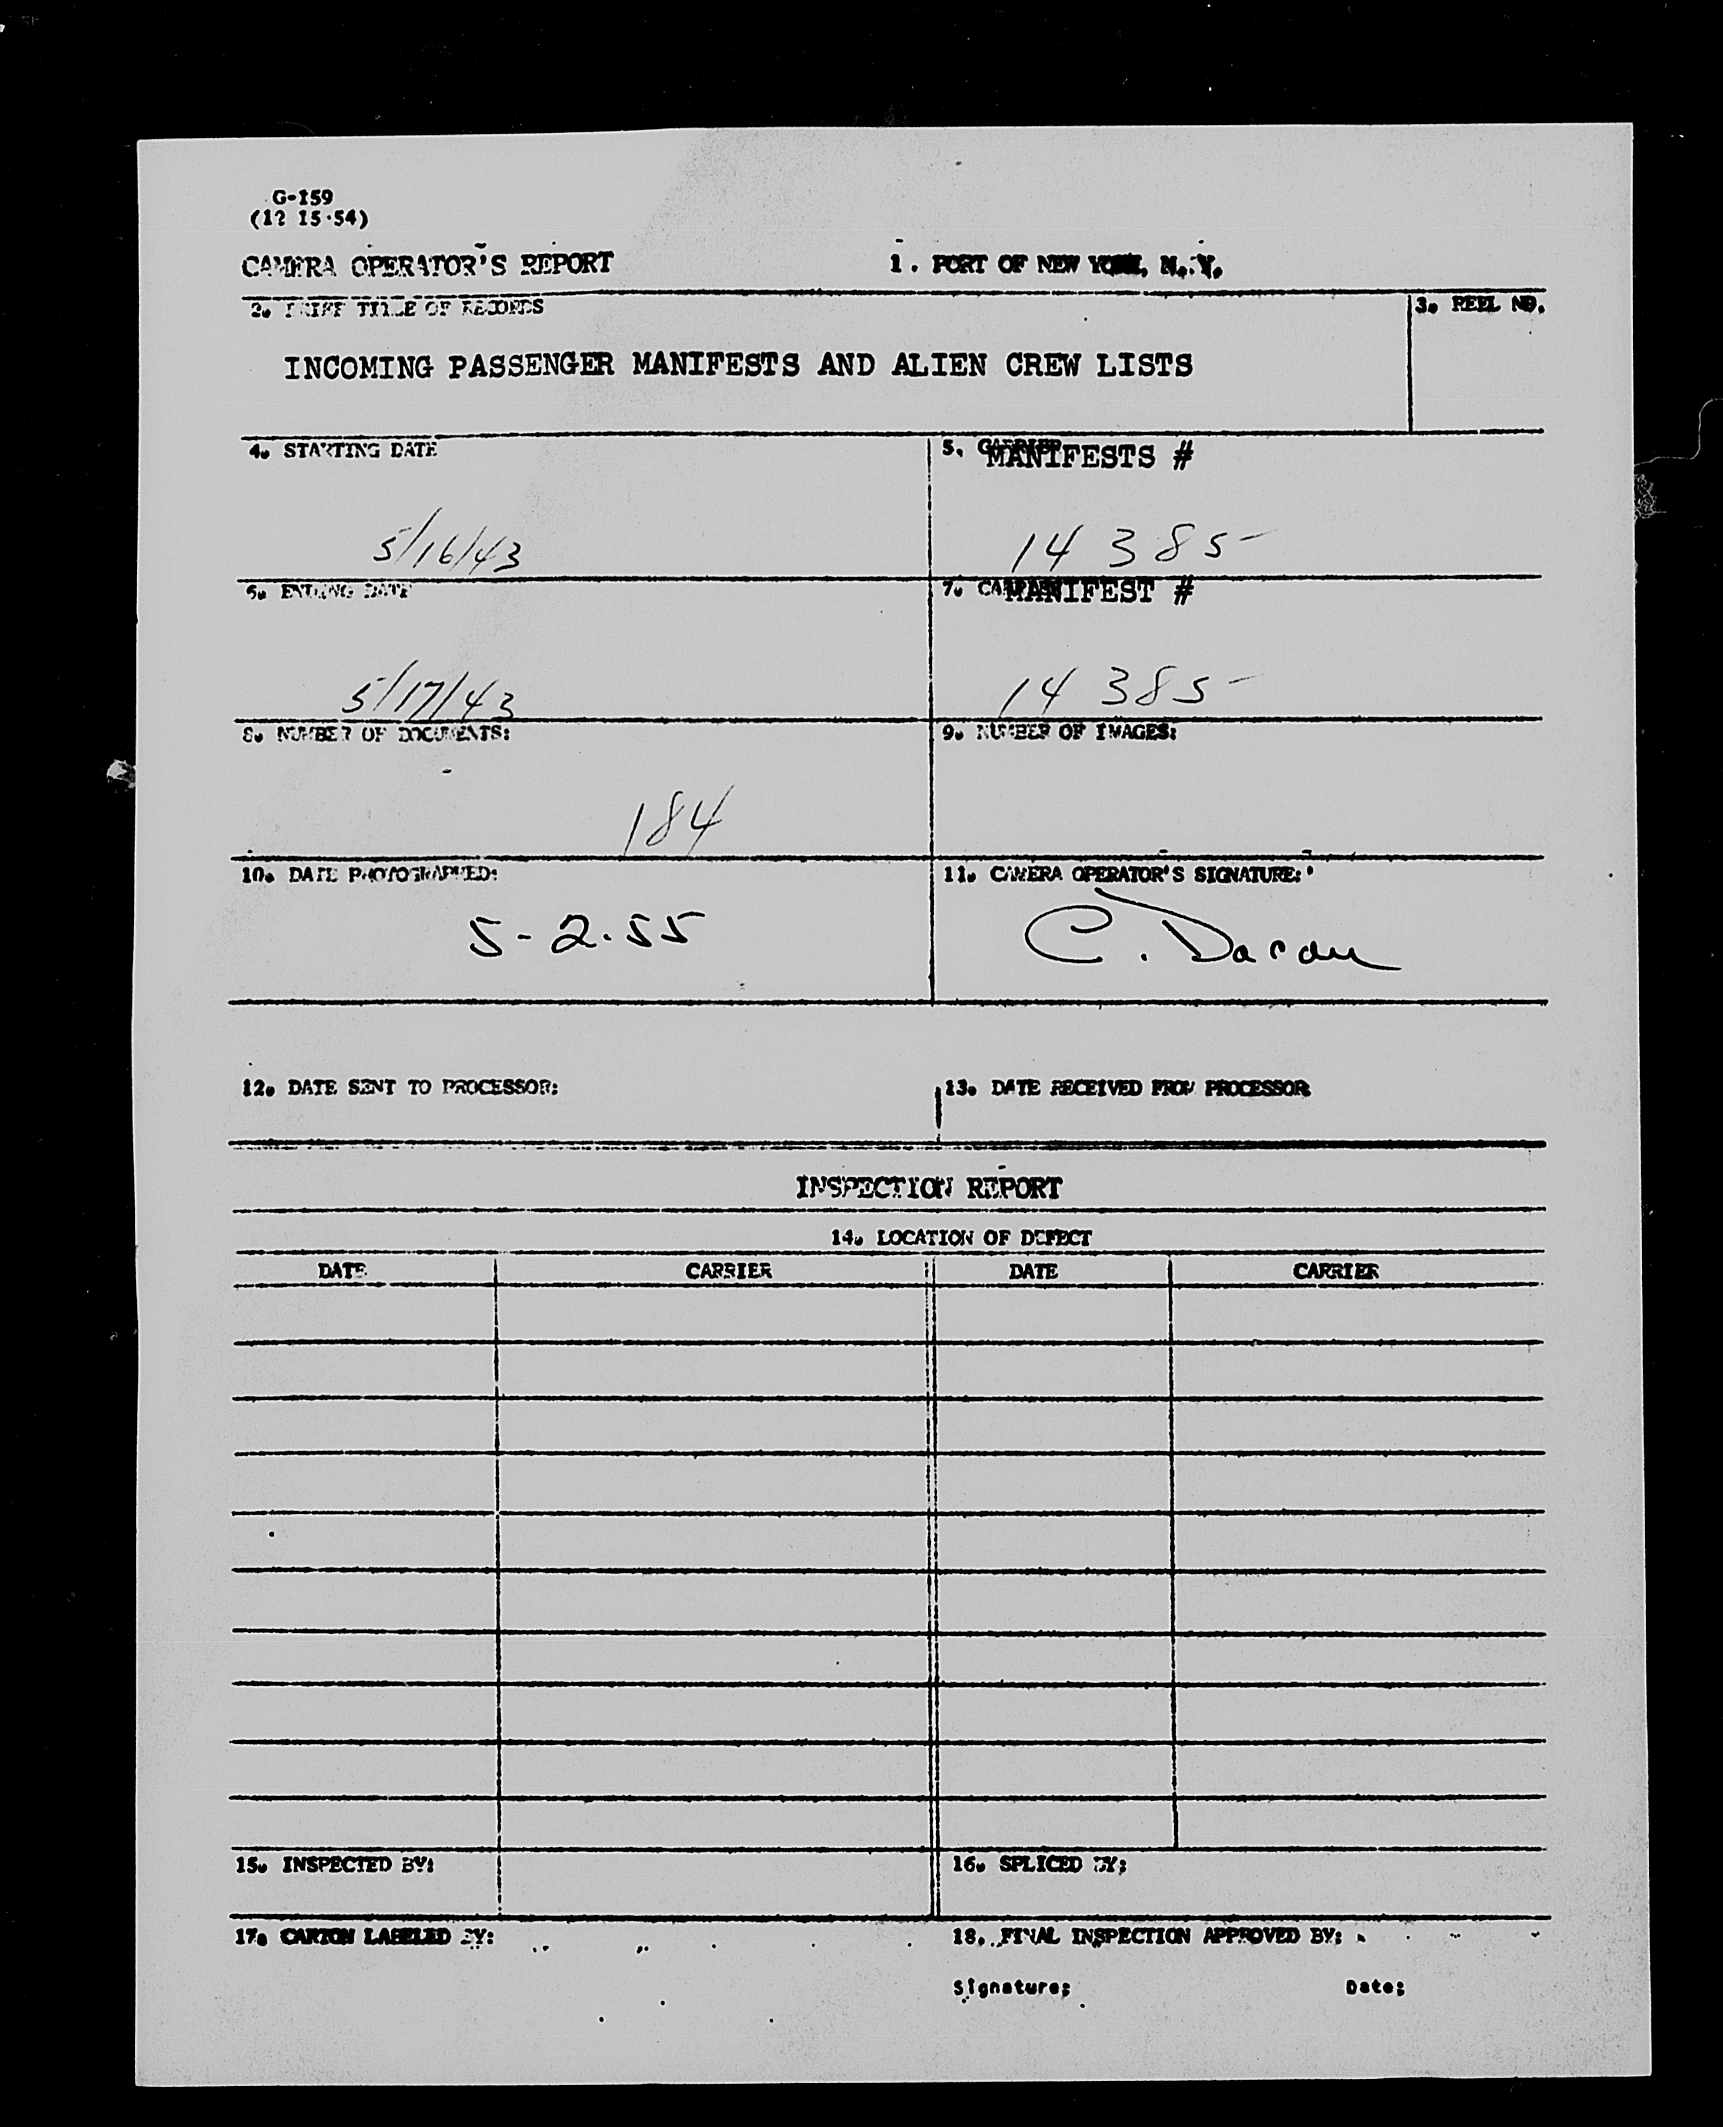 G-159
(12 15·54)
CAMERA OPERATOR'S REPORT 1. PORT OF NEW YORK, N. Y.
2. BRIEF TITLE OF RECORDS 3. REEL NO.
INCOMING PASSENGER MANIFESTS AND ALIEN CREW LISTS
4. STARTING DATE 5. CARRIER MANIFESTS #
5/16/43 14385
6. ENDING DATE 7. MANIFEST #
5/17/43 14385
8. NUMBER OF DOCUMENTS: 9. NUMBER OF IMAGES:
184
10. DATE PHOTOGRAPHED: 11. CAMERA OPERATOR'S SIGNATURE:
5-2.55 C.
12. DATE SENT TO PROCESSOR: 13. DATE RECEIVED FROM PROCESSOR
INSPECTION REPORT
14. LOCATION OF DEFECT
DATE CARRIER DATE CARRIER
15. INSPECTED BY: 16. SPLICED BY:
17. CARTON LABELED BY: 18. FINAL INSPECTION APPROVED BY:
Signature: Date: